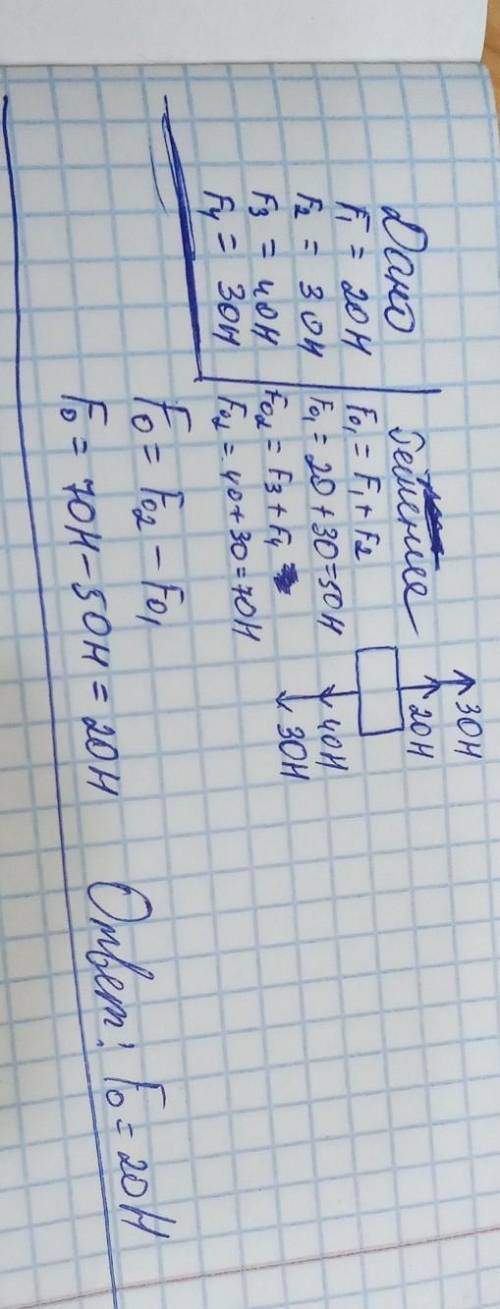 Дано
F₁ = 20Н
F₂ = 30Н
F₃ = 40Н
F₄ = 30Н
Решение
F₀₁ = F₁ + F₂
F₀₁ = 20 + 30 = 50Н
F₀₂ = F₃ + F₄
F₀₂ = 40 + 30 = 70Н
F₀ = F₀₂ − F₀₁
F₀ = 70Н − 50Н = 20Н
30Н
20Н
40Н
30Н
Ответ: F₀ = 20Н